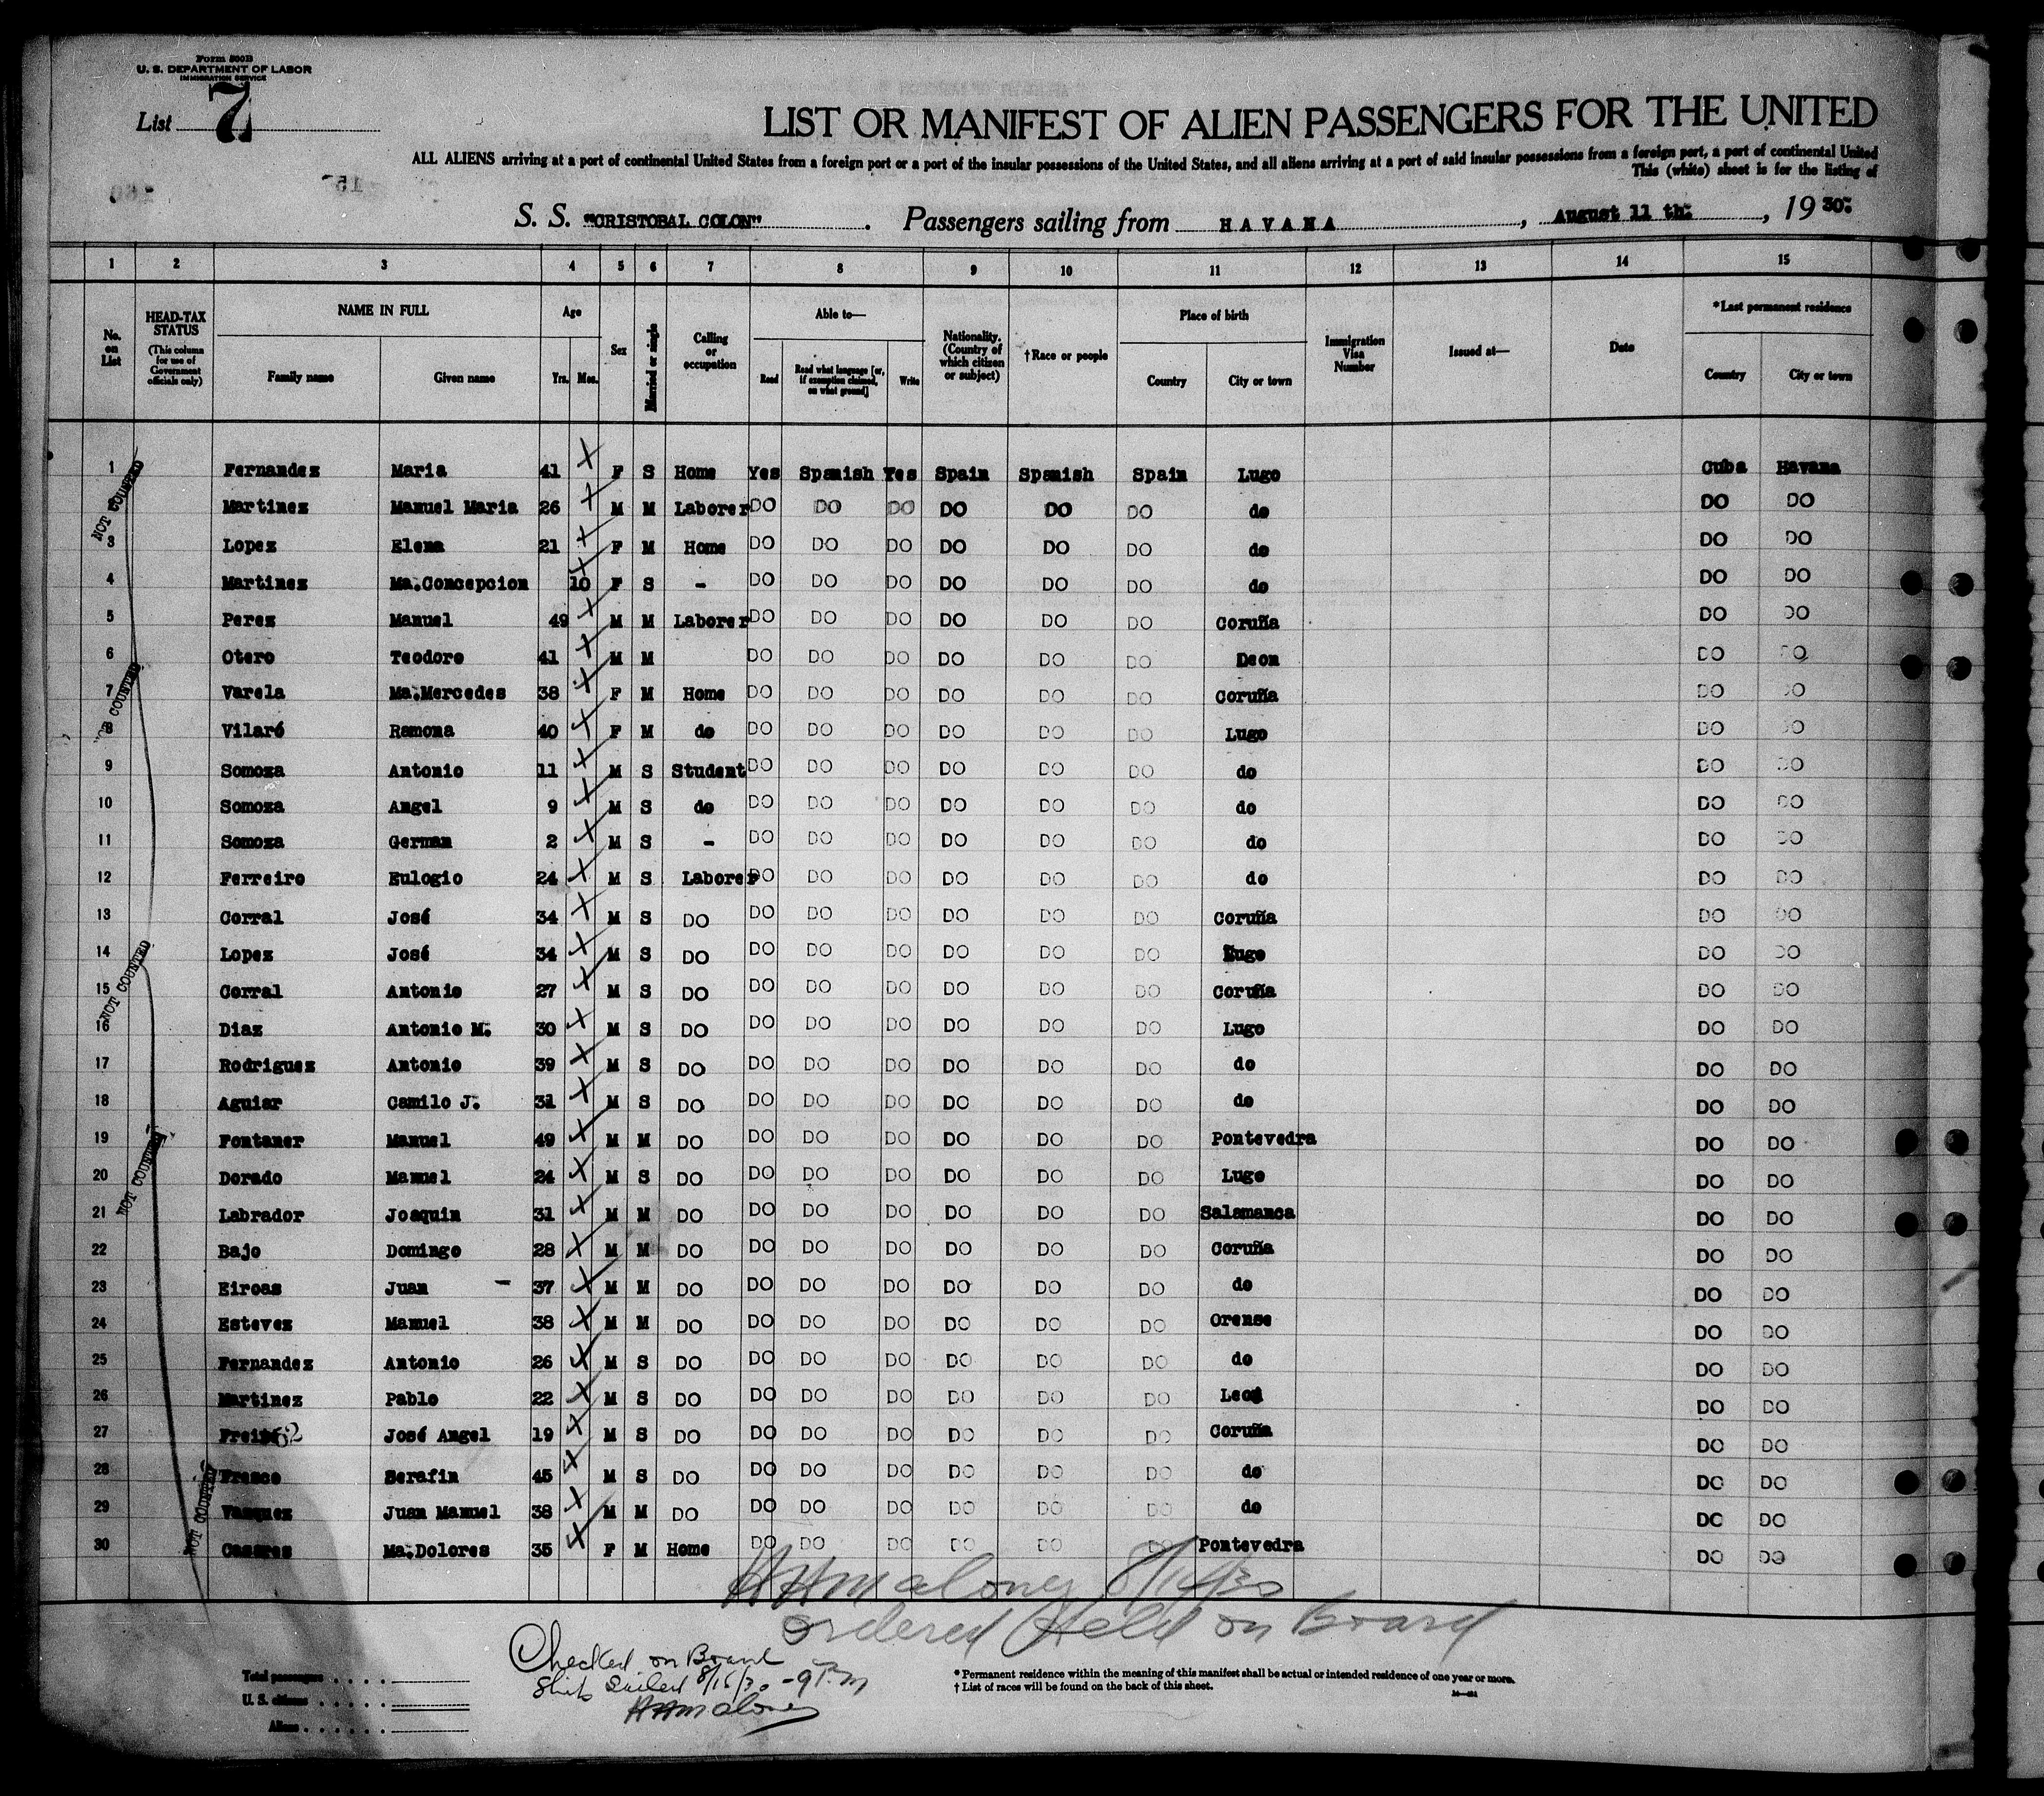 Form 500B
U. S. DEPARTMENT OF LABOR
IMMIGRATION SERVICE
List 7
LIST OR MANIFEST OF ALIEN PASSENGERS FOR THE UNITED
ALL ALIENS arriving at a port of continental United States from a foreign port or a port of the insular possessions of the United States, and all aliens arriving at a port of said insular possessions from a foreign port, a port of continental United
This (white) sheet is for the listing of
S. S. "CRISTOBAL COLON". Passengers sailing from HAVANA, August 11 th:, 1930:
1 2 3 4 5 6 7 8 9 10 11 12 13 14 15
No. on List HEAD-TAX STATUS (This column for use of Government officials only) NAME IN FULL Family name Given name Age Yrs. Mos. Sex Married or single Calling or occupation Able to— Read Read what language [or, if exemption claimed, on what ground] Write Nationality. (Country of which citizen or subject) †Race or people Place of birth Country City or town Immigration Visa Number Issued at— Date *Last permanent residence Country City or town
1 Fernandez Maria 41 F S Home Yes Spanish Yes Spain Spanish Spain Lugo Cuba Havana
2 Martinez Manuel Maria 26 M M Laborer DO DO DO DO DO DO do DO DO
3 Lopez Elena 21 F M Home DO DO DO DO DO DO do DO DO
4 Martinez Ma.Concepcion 10 F S - DO DO DO DO DO DO do DO DO
5 Perez Manuel 49 M M Laborer DO DO DO DO DO DO Coruña DO DO
6 Otero Teodoro 41 M M DO DO DO DO DO DO Deon DO DO
7 Varela Ma.Mercedes 38 F M Home DO DO DO DO DO DO Coruña DO DO
8 Vilaró Ramona 40 F M do DO DO DO DO DO DO Lugo DO DO
9 Somoza Antonio 11 M S Student DO DO DO DO DO DO do DO DO
10 Somoza Angel 9 M S do DO DO DO DO DO DO do DO DO
11 Somoza German 2 M S - DO DO DO DO DO DO do DO DO
12 Ferreiro Eulogio 24 M S Laborer DO DO DO DO DO DO do DO DO
13 Corral José 34 M S DO DO DO DO DO DO DO Coruña DO DO
14 Lopez José 34 M S DO DO DO DO DO DO DO Lugo DO DO
15 Corral Antonio 27 M S DO DO DO DO DO DO DO Coruña DO DO
16 Diaz Antonio M. 30 M S DO DO DO DO DO DO DO Lugo DO DO
17 Rodriguez Antonio 39 M S DO DO DO DO DO DO DO do DO DO
18 Aguiar Camilo J. 31 M S DO DO DO DO DO DO DO do DO DO
19 Fontaner Manuel 49 M M DO DO DO DO DO DO DO Pontevedra DO DO
20 Dorado Manuel 24 M S DO DO DO DO DO DO DO Lugo DO DO
21 Labrador Joaquin 31 M M DO DO DO DO DO DO DO Salamanca DO DO
22 Bajo Domingo 28 M M DO DO DO DO DO DO DO Coruña DO DO
23 Eiroas Juan - 37 M M DO DO DO DO DO DO DO do DO DO
24 Estevez Manuel 38 M M DO DO DO DO DO DO DO Orense DO DO
25 Fernandez Antonio 26 M S DO DO DO DO DO DO DO do DO DO
26 Martinez Pablo 22 M S DO DO DO DO DO DO DO Leon DO DO
27 José Angel 19 M S DO DO DO DO DO DO DO Coruña DO DO
28 Fresco Serafin 45 M S DO DO DO DO DO DO DO do DO DO
29 Vazquez Juan Manuel 38 M M DO DO DO DO DO DO DO do DO DO
30 Casares Ma.Dolores 35 F M Home DO DO DO DO DO DO Pontevedra DO DO
NOT COUNTED
NOT COUNTED
NOT COUNTED
NOT COUNTED
NOT COUNTED
HAMaloney 8/16/30
ordered Held on Board
Checked on Board
Ship Sailed 8/16/30 - 9 P.M
HAMaloney
Total passengers
U. S. citizens
Aliens
* Permanent residence within the meaning of this manifest shall be actual or intended residence of one year or more.
† List of races will be found on the back of this sheet.